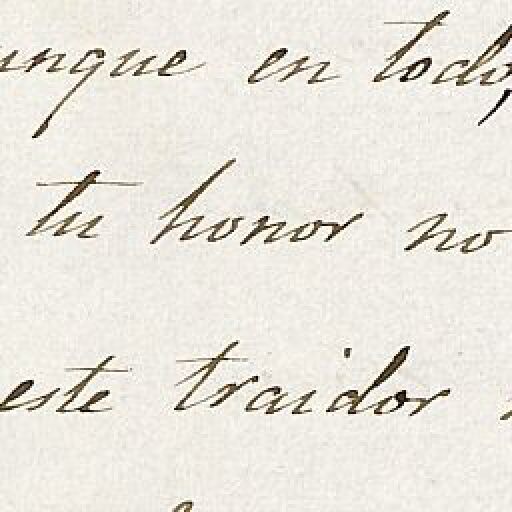 unque en todo,
tu honor no
este traidor